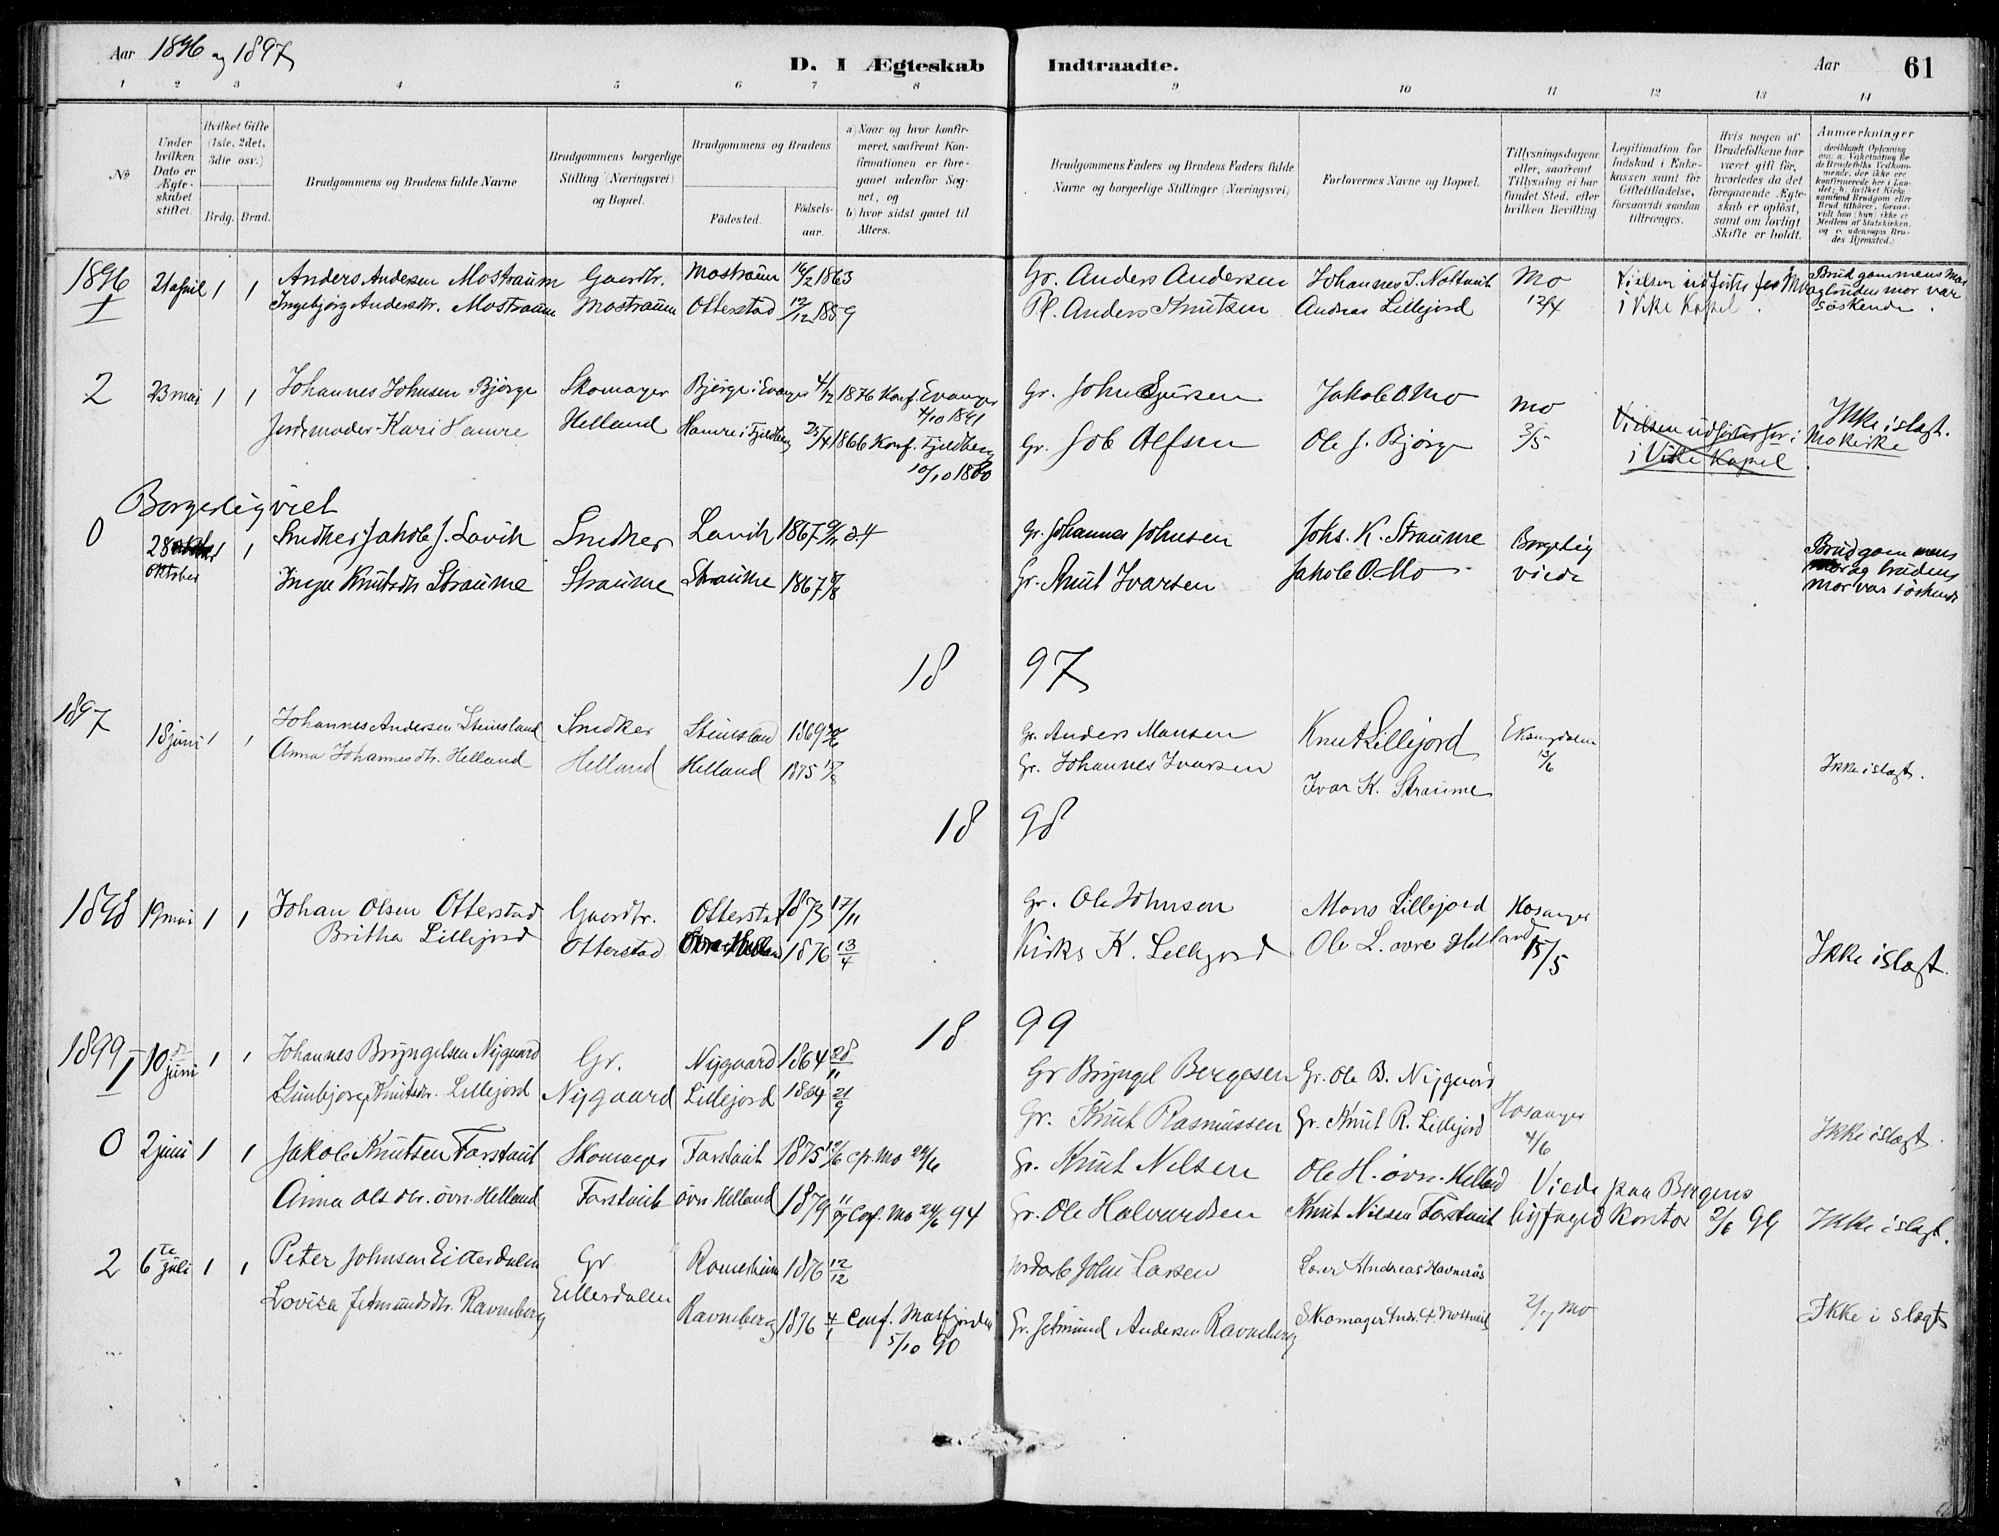 Aar 1896 og 1897
D. I Ægteskab Indtraadte.
Aar 61
1 2 3 4 5 6 7 8 9 10 11 12 13 14
No
Under hvilken Dato er Ægteskabet stiftet.
Hvilket Gifte (1ste, 2det, 3die osv.)
Brdg. Brud.
Brudgommens og Brudens fulde Navne
Brudgommens borgerlige Stilling (Næringsvei) og Bopæl.
Brudgommens og Brudens
Fødested.
Fødselsaar.
a) Naar og hvor konfirmeret, saafremt Konfirmationen er foregaaet udenfor Sognet, og
b) hvor sidst gaaet til Alters.
Brudgommens Faders og Brudens Faders fulde Navne og borgerlige Stillinger (Næringsvei)
Forlovernes Navne og Bopæl.
Tillysningsdagene eller, saafremt Tillysning ei har fundet Sted, efter hvilken Bevilling
Legitimation for Indskud i Enkekassen samt for Giftetilladelse, forsaavidt saadan tiltrænges.
Hvis nogen af Brudefolkene har været gift før, hvorledes da det foregaaende Ægteskab er opløst, samt om lovligt Skifte er holdt.
Anmærkninger
1896
1 21 april 1 1 Anders Andersen Mostraum Gaardbr. Mostraum 14/2 1863 Gr. Anders Andersen Johannes J. Nottveit Mo Vielsen udførtes for Mo Brudgommens mor
Ingebjørg Andersdtr. Mostraum Mostraum Otterstad 12/12 1859 Pl. Anders Knutsen Andreas Lillejord 12/4 i Vike Kapel. og brudens mor var søskende.
2 23 mai 1 1 Johannes Johnsen Bjørge Skomager Bjørge i Evanger 4/12 1876 Konf. Evanger 4/10 1891 Gr. John Sjursen Jakob O. Mo Mo
Jordemoder Kari Hamre Helland Hamre i Fjeldberg 25/4 1866 Konf. Fjeldberg 10/10 1880 Gr. Job Alfsen Ole J. Bjørge 3/5 Vielsen udførtes for i Mo kirke Ikke i slægt.
i Vike Kapel
Borgerlig viet
0 28 oktober 1 1 Snedker Jakob J. Lavik Snedker Lavik 1867 Gr. Johannes Johnsen Johs. K. Straume Borgerlig Brudgommens
Inga Knutsdtr Straume Straume Straume 1867 Gr. Knut Ivarsen Jakob O. Mo viede mor og brudens mor var søskende
18 97
1897
18 juni 1 1 Johannes Andersen Steinsland Snedker Steinsland 1869 Gr. Anders Monsen Knut Lillejord Eksingdalen
Anna Johannesdtr. Helland Helland Helland 1875 17/8 Gr. Johannes Ivarsen Ivar K. Straume 13/6 Ikke i slægt.
18 98
1898 19 mai 1 1 Johan Olsen Otterstad Gaardbr. Otterstad 1873 17/11 Gr. Ole Johnsen Mons Lillejord Hosanger
Britha Lillejord Otterstad 1876 13/4 Kirks. K. Lillejord Ole L. øvre Helland 15/5 Ikke i slægt.
18 99
1899
1 10 de juni 1 1 Johannes Bryngelsen Nygaard Gr. Nygaard 1864 28/11 Gr Bryngel Bergesen Gr. Ole B. Nygaard
Gunbjorg Knutsdtr. Lillejord Nygaard Lillejord 1864 21/9 Gr. Knut Rasmussen Gr. Knut R. Lillejord Hosanger 4/6 Ikke i slægt.
0 2 juni 1 1 Jakob Knutsen Farstveit Skomager Farstveit 1875 Cf. Mo 24/6 Gr. Knut Nilsen Ole H. øvr. Helland Viede paa Bergens
Anna Olsdtr. øvr. Helland Farstveit øvr. Helland 1879 11/9 Conf. Mo 24/6 94 Gr. Ole Halvardsen Knut Nilsen Farstveit byfoged Kontor 2/6 99 Ikke i slægt.
2 6 te juli 1 1 Peter Johnsen Eitterdalen Gr Romerheim 1876 12/12 John Larsen Lærer Andreas Havnerås
Lovisa Jetmundsdtr. Ravneberg Eitterdalen Ravneberg 1876 4/1 Conf. Masfjorden 5/10 90 Gr. Jetmund Andersen Ravneberg Skomager Andr. Nottveit 2/7 Mo Ikke i slægt